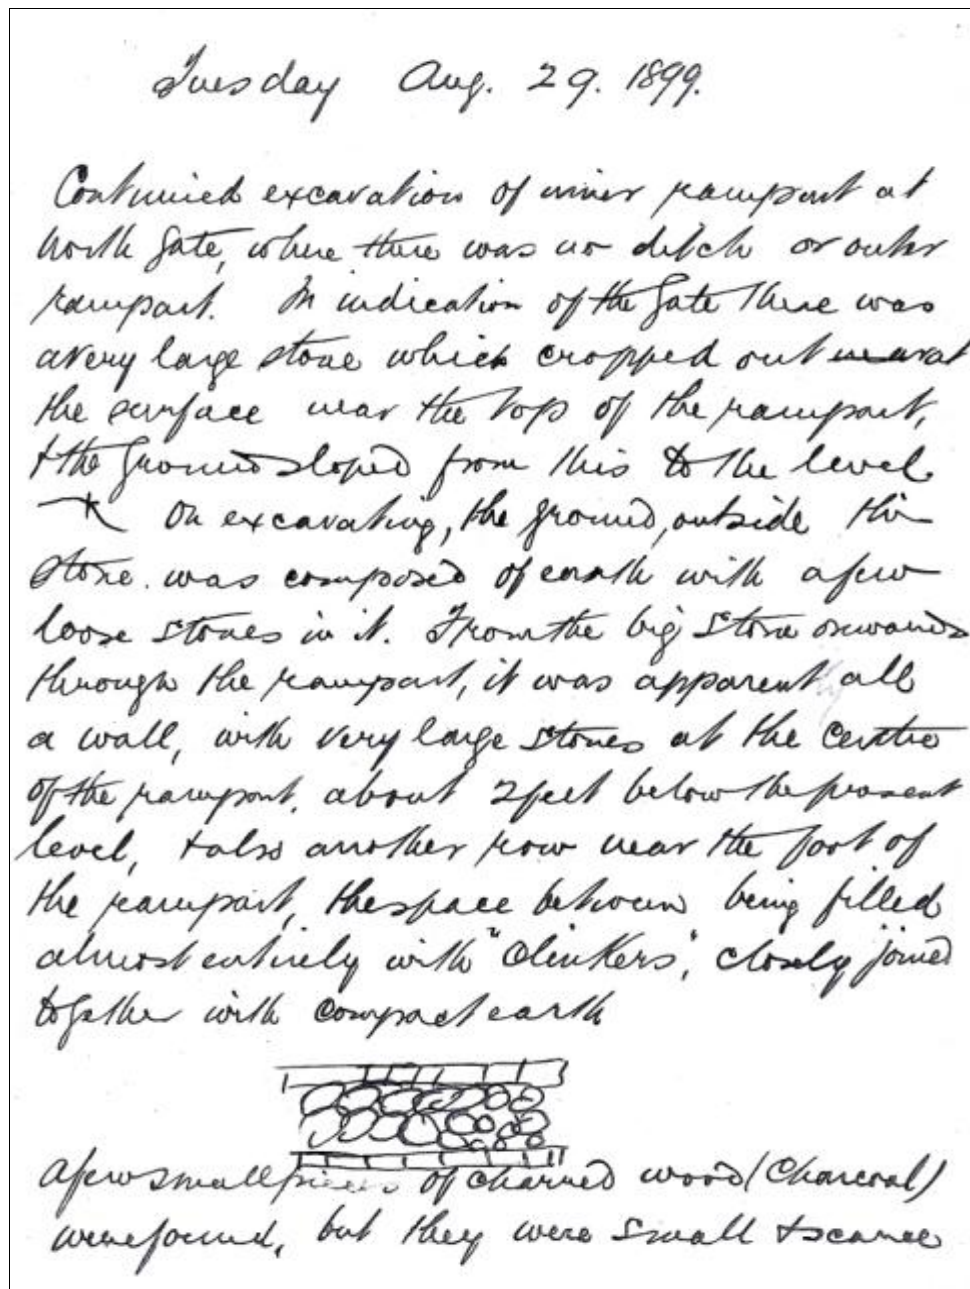 Tuesday Aug. 29. 1899.
Continued excavation of inner rampart at
North Gate, where there was no ditch or outer
rampart. In indication of the Gate there was
a very large stone which cropped out at
the surface near the top of the rampart,
& the ground sloped from this to the level
On excavating, the ground, outside this
stone. was composed of earth with a few
loose stones in it. From the big stone onwards
through the rampart, it was apparently all
a wall, with very large stones at the centre
of the rampart. about 2 feet below the present
level, & also another row near the foot of
the rampart, the space between being filled
almost entirely with "Clinkers", closely joined
together with compact earth
A few small pieces of charred wood (Charcoal)
were found, but they were small & scarce